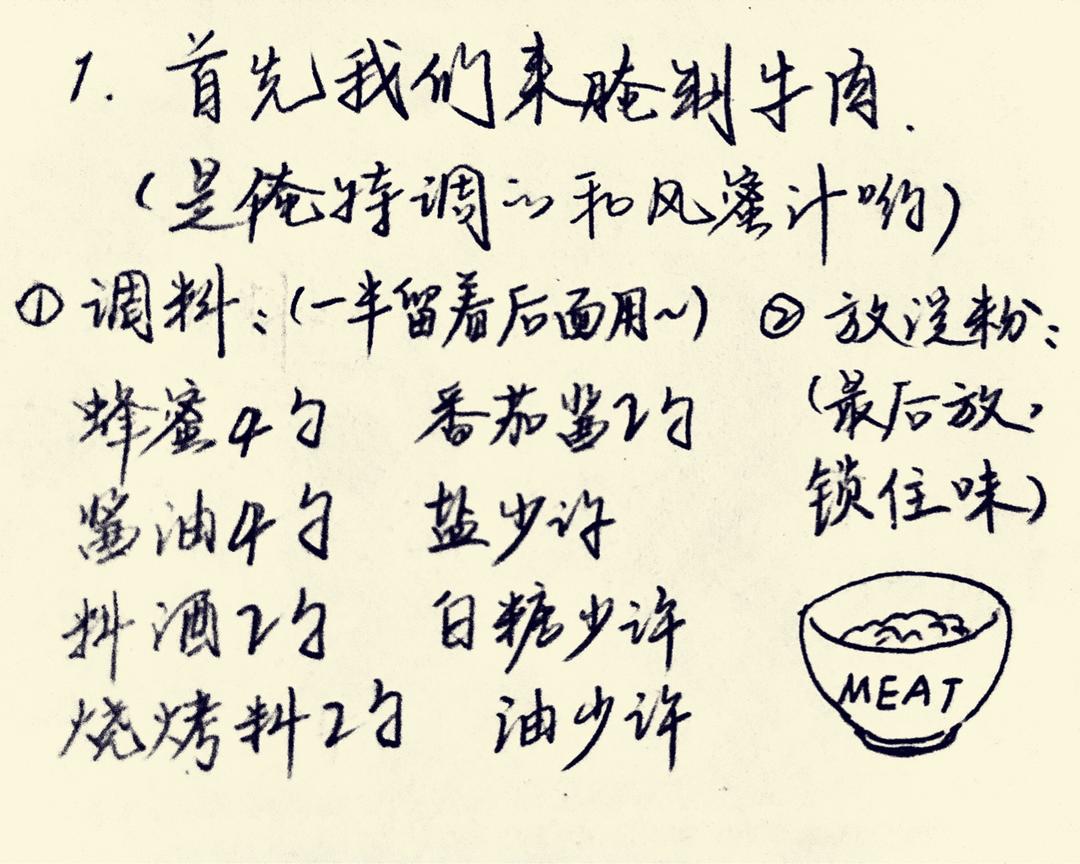 1. 首先我们来腌制牛肉.
(是俺特调的和风蜜汁哟)
① 调料:(一半留着后面用~)
蜂蜜4勺 番茄酱2勺
酱油4勺 盐少许
料酒2勺 白糖少许
烧烤料2勺 油少许
② 放淀粉:
(最后放,
锁住味)
MEAT